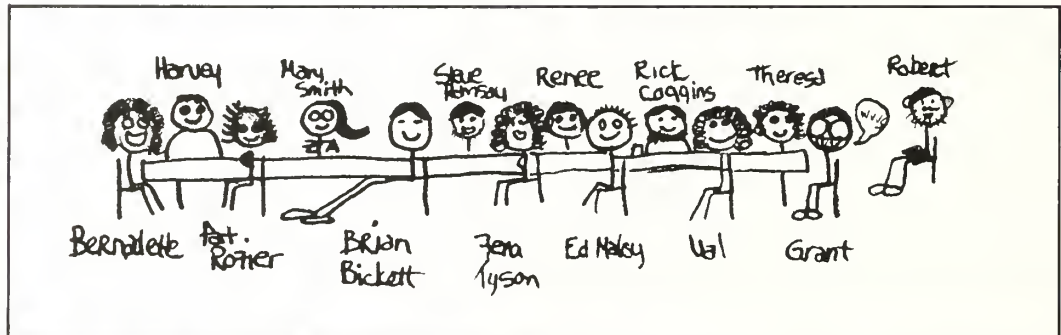 Harvey
Mary
Smith
Steve
Ramsay
Renee
Rick
Coggins
Theresa
Robert
ZTA
Bernadette
Pat.
Rozier
Brian
Bickett
Zena
Tyson
Ed
Val
Grant